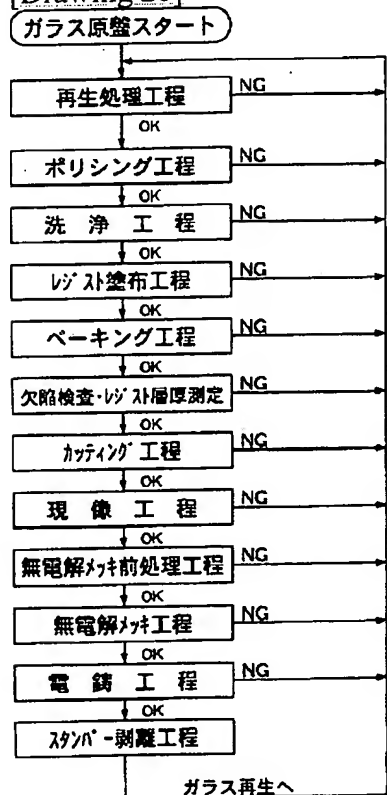 ガラス原盤スタート
再生処理工程
NG
OK
ポリシング工程
NG
OK
洗浄工程
NG
OK
レジスト塗布工程
NG
OK
ベーキング工程
NG
OK
欠陥検査・レジスト層厚測定
NG
OK
カッティング工程
NG
OK
現像工程
NG
OK
無電解メッキ前処理工程
NG
OK
無電解メッキ工程
NG
OK
電鋳工程
NG
OK
スタンパー剥離工程
ガラス再生へ